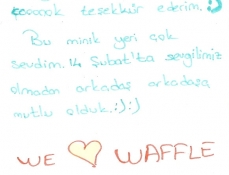 çooook teşekkür ederim. :)
Bu minik yeri çok
sevdim. 14 Şubat'ta sevgilimiz
olmadan arkadaş arkadaşa
mutlu olduk. :) :)
WE ♡ WAFFLE